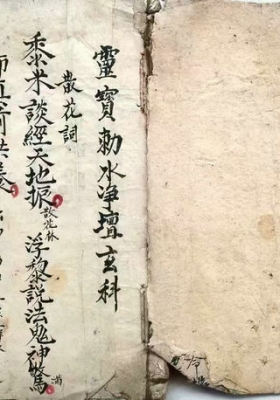 靈寶勅水浄壇玄科
散花詞
黍米談經天地振散花林 浮黎説法鬼神驚滿